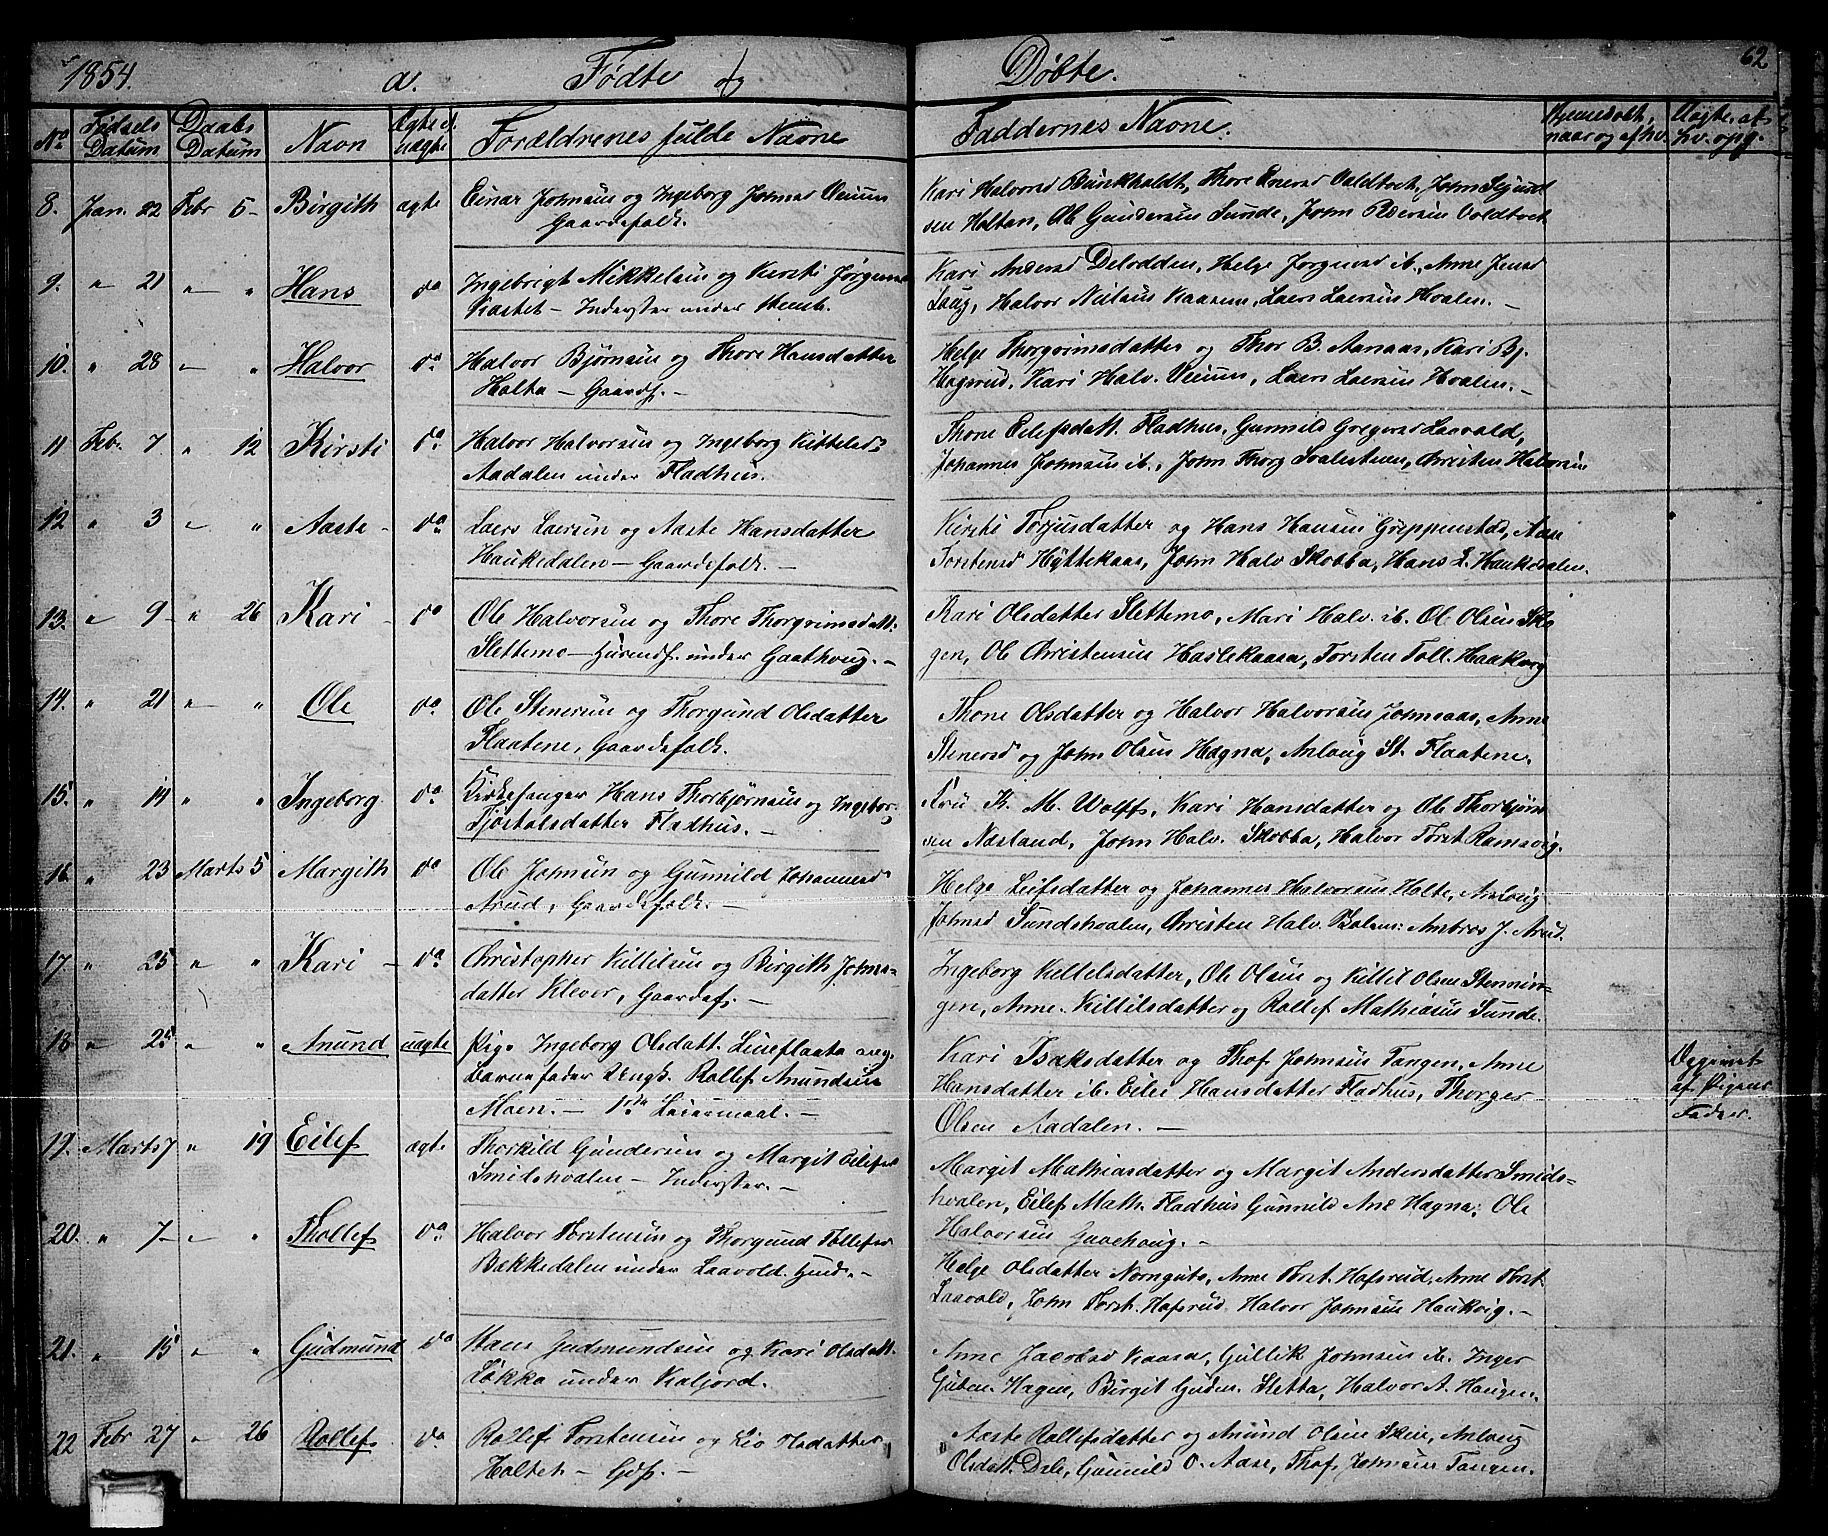 1854. a. Fødte og Døbte. 62
No Fødsels Datum Daabs Datum Navn Ægte el. uægte Forældrenes fulde Navne Faddernes Navne. Hjemedøbt, naar og af hv. Uægte, af hv. opg.
8. Jan. 22 Febr 5 Birgith ægte Einar Johnsen og Ingeborg Johnsd Veium
Gaardefolk.
Kari Halvorsd Bunkholdt, Thore Enersd Voldtvet, John Sigurd
sen Holtan, Ole Gundersen Sunde, John Pedersen Voldtvet
9. " 21 " " Hans do Ingebrigt Mikkelsen og Kirsti Jørgensd
Kastet - Inderster under
Kari Andersd Delodden, Helge Jørgensd ib., Anne Jensd
Haug, Halvor Nielsen Kaasene, Laers Laersen Hvalen. -
10. " 28 " " Halvor do Halvor Bjørnsen og Thore Hansdatter
Holta - Gaardf. -
Helge Thorgrimsdatter og Thor B. Aanaas, Kari Bj.
Hagerud, Kari Halv. Veium, Laers Laersen Hvalen. -
11 Feb. 7 " 12 Kirsti do Halvor Halvorsen og Ingeborg Kittelsd
Aadalen under Fladhus.
Thone Eilefsdatt. Fladhus, Gunnild Gregersd Laavald,
Johannes Johnsen ib., John Thorg Svalestuen, Christen Halvorsen
12 " 3 " " Aaste do Laers Laersen og Aaste Hansdatter
Haukedalen - Gaardefolk. -
Kirsti Torjusdatter og Hans Hansen Grippenstad, Aase
Torstensd Hyttekaas, John Halv Skobba, Hans L. Haukedalen.
13. " 9 " 26 Kari do Ole Halvorsen og Thore Thorgrimsdatt.
Slettemo - Huusmf. under Gaathoug. -
Kari Olsdatter Slettemo, Mari Halv. ib. Ole Olsen Sko
gen, Ole Christensen Haslekaasa, Torsten Toll. Haukvig
14. " 21 " " Ole do Ole Stenersen og Thorgund Olsdatter
Flaatene, Gaardefolk.
Thone Olsdatter og Halvor Halvorsen Johnsaas, Anne
Stenersd og John Olsen Hagna, Anlaug St. Flaatene.
15. " 14 " " Ingeborg do Kirkesanger Hans Thorbjørnsen og Ingeborg
Fjøstolsdatter Fladhus. -
Fru K. M. Wolff, Kari Hansdatter og Ole Thorbjørn
sen Næsland, John Halv. Skobba, Halvor Torst Ramsvig.
16. " 23 Marts 5 Margith do Ole Johnsen og Gunnild Johannesd
Aarud, Gaardefolk. -
Helge Leifsdatter og Johannes Halvorsen Holte, Anlaug
Johnsd Sundshvalen, Christen Halv. Anbros J. Arud.
17. " 25 " " Kari do Christopher Kittilsen og Birgith Johns-
datter Klever, Gaardef. -
Ingeborg Kittelsdatter, Ole Olsen og Kittil Olsen Stennin-
gen, Anne Kittilsdatter og Rollef Mathiasen Sunde.
18 " 25 " " Anund uægte Pige Ingeborg Olsdatt. Lineflaata og
Barnefader Ungk. Rollef Anundsen
Moen. - 1ste Leiermaal. -
Kari Isaksdatter og Thof Johnsen Tangen, Anne
Hansdatter ib. Eilei Hansdatter Fladhus, Thorger
Olsen Aadalen. -
Opgivet
af Pigens
Fader.
19. Marts 7 " 19 Eilef ægte Thorkild Gundersen og Margit Eilefsd
Smidshvalen - Inderster. -
Margit Mathiasdatter og Margit Andersdatter Smids-
hvalen, Eilef Math. Fladhus Gunnild And Hagna, Ole
Halvorsen Gaaehoug. -
20. " 7 " " Thollef do Halvor Torstensen og Thorgund Tollefsd
Bakkedalen under Laavold.
Helge Olsdatter Norngute, Anne Torst. Hafsrud, Anne Torst.
Laavold, John Torst. Hafsrud, Halvor Johnsen Haukvig. -
21. " 15 " " Gudmund do Gudmundsen og Kari Olsdatt.
Løkka under Kaljord.
Anne Jacobsd Kaasa, Gullik Johnsen ib. Inger
Gutten. Hagen, Birgit Guden. Sletta, Halvor A. Haugen.
22 Febr 27 " 26 Rollef do Rollef Torstensen og Liv Olsdatter
Holtet - Gdf. -
Aaste Rollefsdatter og Anund Olsen Skeie, Anlaug
Olsdatt. Dale, Gunnild O. Aase, Thof Johnsen Tangen.